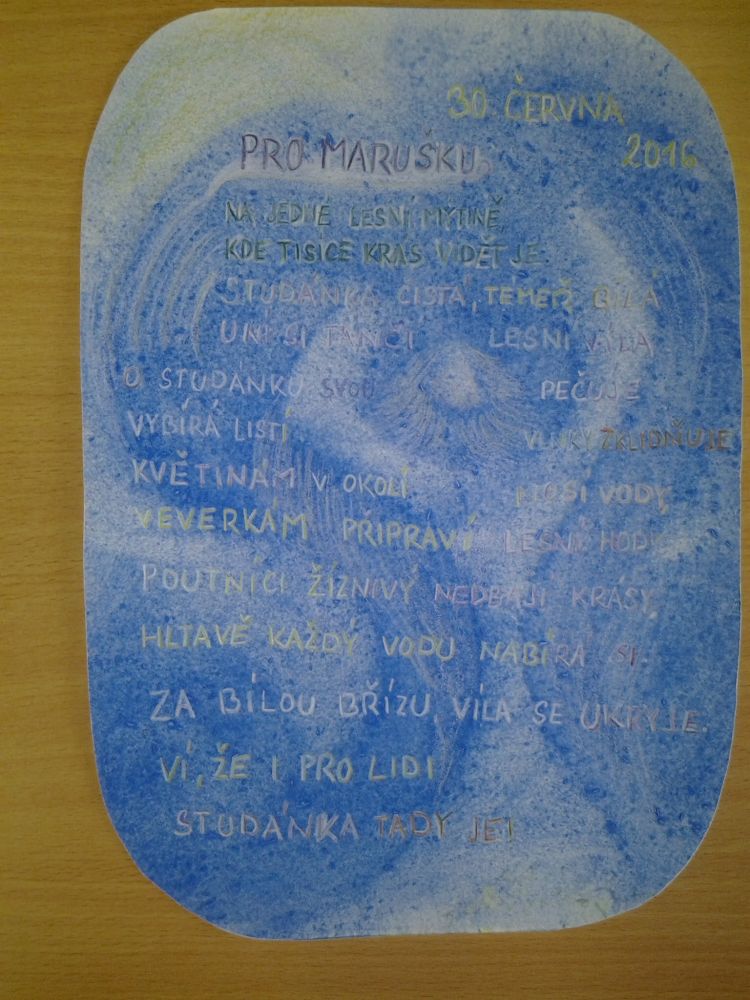 30. ČERVNA
2016
PRO MARUŠKU
NA JEDNÉ LESNÍ MÝTINĚ,
KDE TISÍCE KRÁS VIDĚT JE.
STUDÁNKA ČISTÁ, TÉMĚŘ BÍLÁ
U NÍ SI TANČÍ LESNÍ VÍLA
O STUDÁNKU SVOU PEČUJE
VYBÍRÁ LISTÍ VLNKY ZKLIDŇUJE
KVĚTINÁM V OKOLÍ NOSÍ VODY
VEVERKÁM PŘIPRAVÍ LESNÍ HODY
POUTNÍCI ŽÍZNIVÝ NEDBAJÍ KRÁSY,
HLTAVĚ KAŽDÝ VODU NABÍRÁ SI.
ZA BÍLOU BŘÍZU, VÍLA SE UKRYJE.
VÍ, ŽE I PRO LIDI
STUDÁNKA TADY JE!